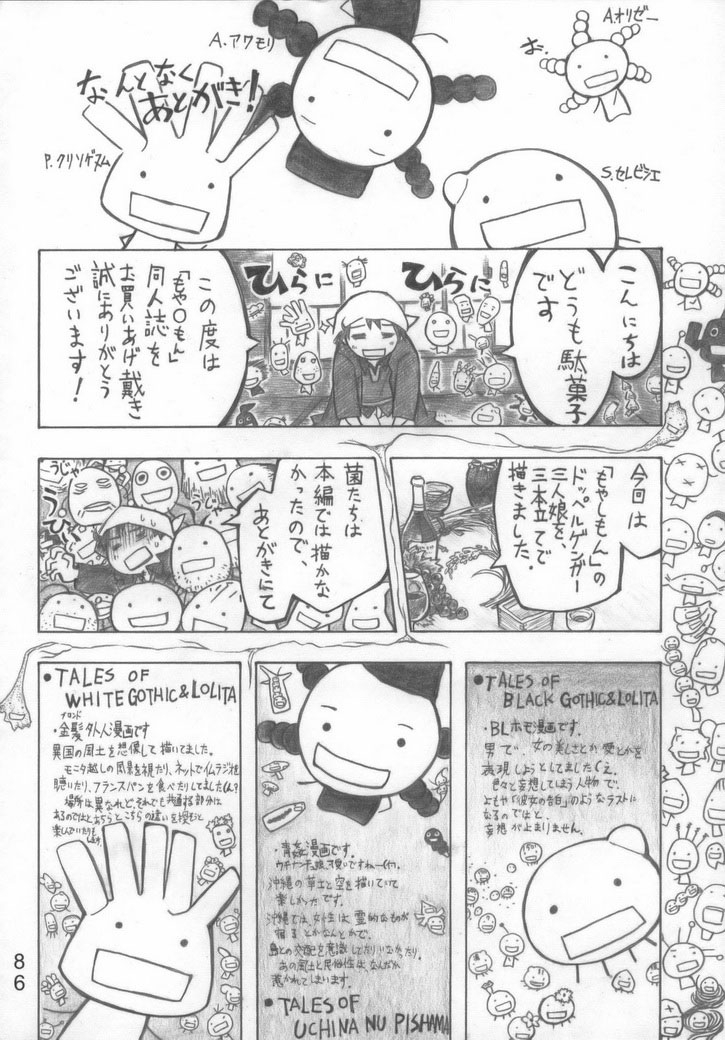 A.オリゼー
お。
A.アワモリ
なんとなく
あとがき!
P.クリソゲヌム
S.セレビシエ
こんにちは
どうも駄菓子
です
ひらに
ひらに
この度は
「もや〇もん」
同人誌を
お買いあげ戴き
誠にありがとう
ございます!
今回は
「もやしもん」の
ドッペルゲンガー
三人娘を、
三本立てで
描きました。
菌たちは
本編では描かな
かったので、
あとがきにて
うじゃ
うじゃ
うひ
•TALES OF
BLACK GOTHIC&LOLITA
・BLホモ漫画です。
男で、女の美しさとか愛とかを
表現しようとしてましてねぇ。
色々と妄想してしまう人物で
よもや「彼女の告白」のようなラストに
なるのではと、
妄想が止まりません。
・青姦漫画です。
沖縄の草土と空を描いていて
楽しかったです。
沖縄では、女性は霊的なものが
宿るとかなんとかで、
島との交配を意識したりしなかったり。
あの風土と民俗性はなんだか
惹かれてしまいます。
•TALES OF
UCHINA NU PISHAMA
•TALES OF
WHITE GOTHIC&LOLITA
ブロンド
・金髪外人漫画です
異国の風土を想像して描いてました。
モニタ越しの風景を視たり、ネットでイムラジオを
聴いたり、フランスパンを食べたりしてましたね?
場所は異なれど、それでも共通する部分は
あるのではと、あちらとこちらの違いを
86